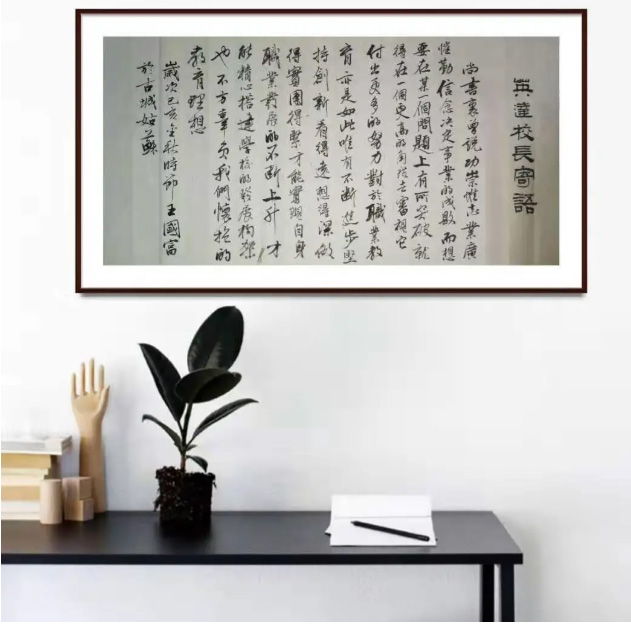 英達校長寄語
尚書裏曾說功崇惟志業廣
惟勤信念决定事業的成敗而想
要在某一個問題上有所突破就
得在一個更高的角度去審視它
付出更多的努力對於職業教
育亦是如此唯有不斷進步堅
持創新看得遠想得深做
得實團得緊才能實現自身
職業發展的不斷上升才
能精心搭建學校的發展構架
也不方辜負我們懷抱的
教育理想
歲次己亥金秋時節王國富
於古城姑蘇